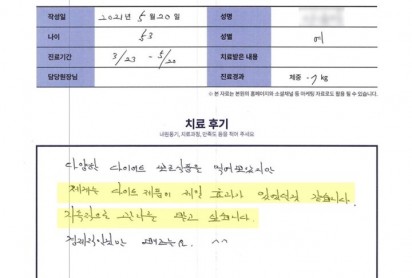 작성일 2021년 5월 20일 성명
나이 53 성별 여
진료기간 3/23 - 5/20 치료받은 내용
담당원장님 진료경과 체중 -7 kg
※ 본 자료는 본원의 홈페이지와 소셜채널 등 마케팅 자료로도 활용 될 수 있습니다.
치료 후기
내원동기, 치료과정, 만족도 등을 적어 주세요
다양한 다이어트 보조식품은 먹어보았지만
저에게는 다이트 제품이 제일 효과가 있었던것 같습니다.
지속적으로 하고 싶습니다.
^^